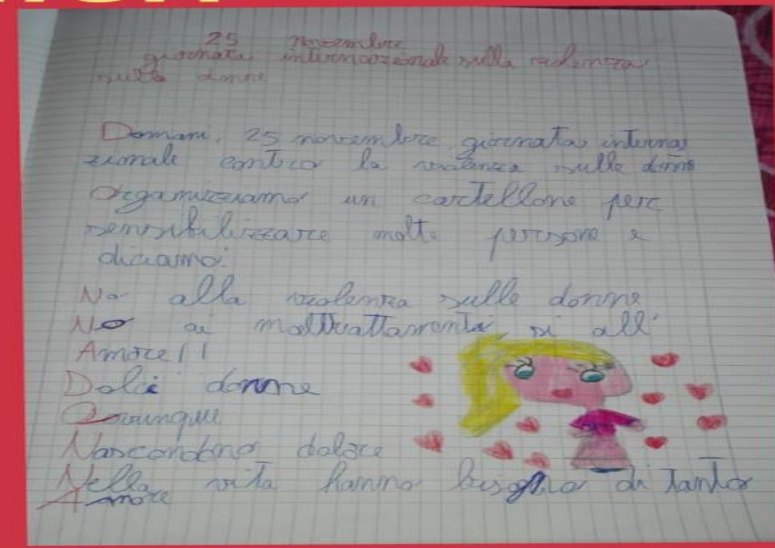 25 novembre
giornata internazionale sulla violenza
sulle donne
Domani, 25 novembre giornata interna
zionale contro la violenza sulle donne
Organizziamo un cartellone per
sensibilizzare molte persone e
diciamo:
No alla violenza sulle donne
No ai maltrattamenti, si all'
Amore!!
Dolci donne
Ovunque
Nascondono dolore
Nella vita hanno bisogno di tanto
Amore